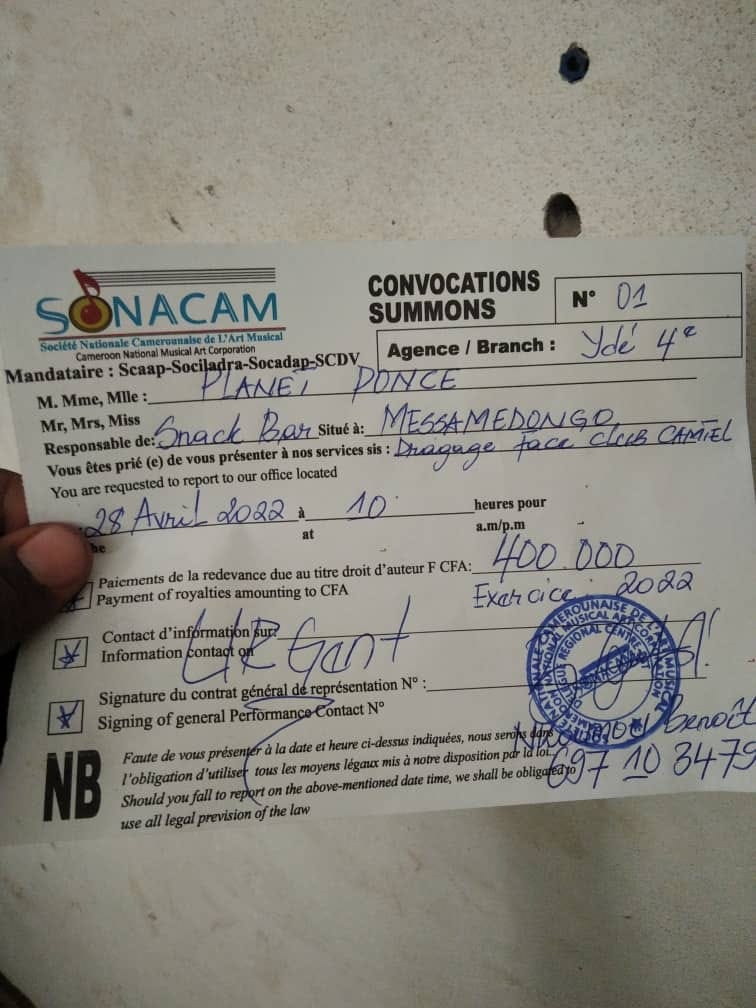 SONACAM
Société Nationale Camerounaise de L'Art Musical
Cameroon National Musical Art Corporation
Mandataire : Scaap-Sociladra-Socadap-SCDV
CONVOCATIONS
SUMMONS
N° 01
Agence / Branch : Ydé 4e
M. Mme, Mlle : PLANET PONCE
Mr, Mrs, Miss
Responsable de: Snack Bar Situé à: MESSAMEDONGO
Vous êtes prié (e) de vous présenter à nos services sis : Dragage face club CAMTEL
You are requested to report to our office located
28 Avril 2022 à 10 heures pour
he at a.m/p.m
Paiements de la redevance due au titre droit d'auteur F CFA: 400.000
Payment of royalties amounting to CFA
Exercice : 2022
Contact d'information sur:
Information contact on
URGent
Signature du contrat général de représentation N° :
Signing of general Performance Contact N°
NB
Faute de vous présenter à la date et heure ci-dessus indiquées, nous serons dans
l'obligation d'utiliser tous les moyens légaux mis à notre disposition par la loi.
Should you fall to report on the above-mentioned date time, we shall be obligated to
use all legal prevision of the law
Benoît
697 10 3479